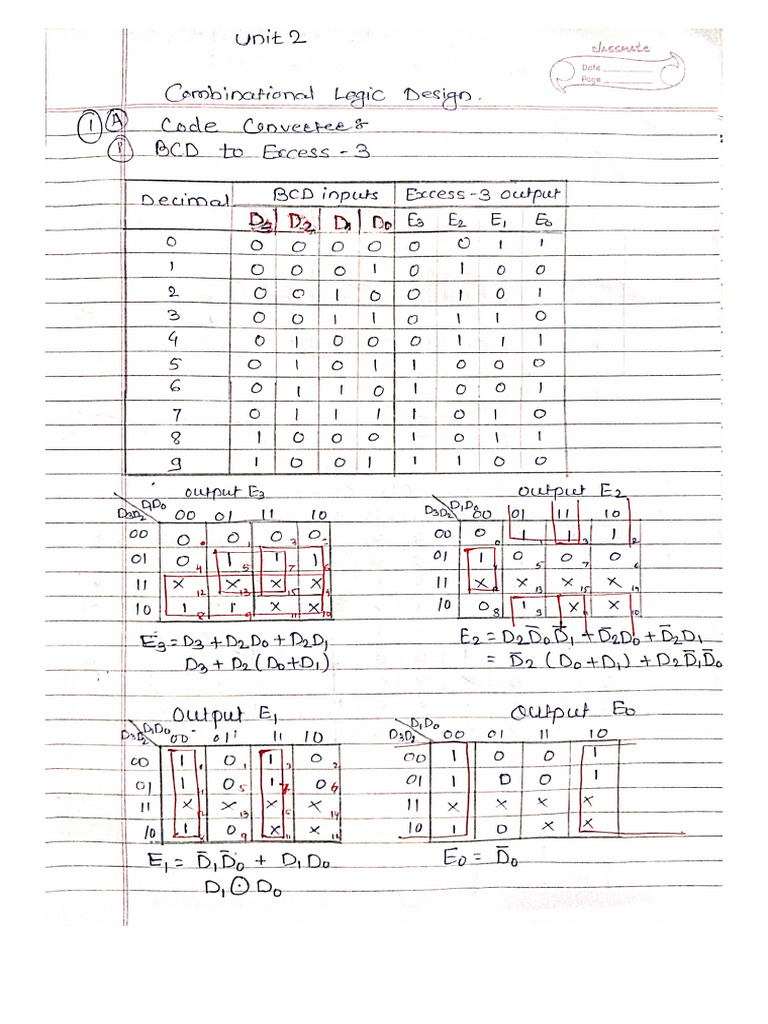 Unit 2
classmate
Date
Page
Combinational Logic Design.
1 A Code Converters
1 BCD to Excess-3
Decimal BCD inputs Excess-3 output
D3 D2 D1 D0 E3 E2 E1 E0
0 0 0 0 0 0 0 1 1
1 0 0 0 1 0 1 0 0
2 0 0 1 0 0 1 0 1
3 0 0 1 1 0 1 1 0
4 0 1 0 0 0 1 1 1
5 0 1 0 1 1 0 0 0
6 0 1 1 0 1 0 0 1
7 0 1 1 1 1 0 1 0
8 1 0 0 0 1 0 1 1
9 1 0 0 1 1 1 0 0
output E3
D3D2 D1D0 00 01 11 10
00 0 0 0 1 0 3 0
01 0 4 1 5 1 7 1 6
11 x 12 x 13 x 15 x
10 1 8 1 9 x x
E3 = D3 + D2D0 + D2D1
D3 + D2 (D0 + D1)
output E2
D3D2 D1D0 00 01 11 10
00 0 1 1 3 1 2
01 1 0 5 0 7 0 6
11 x x 13 x 15 x 14
10 0 8 1 9 x x 10
E2 = D2D̄0D̄1 + D̄2D0 + D̄2D1
= D̄2 (D0 + D1) + D2D̄1D̄0
Output E1
D3D2 D1D0 00 01 11 10
00 1 0 1 1 3 0 2
01 1 0 5 1 7 0 6
11 x x 13 x x 14
10 1 0 9 x 11 x
E1 = D̄1D̄0 + D1D0
D1 ⊙ D0
Output E0
D3D2 D1D0 00 01 11 10
00 1 0 0 1
01 1 0 0 1
11 x x x x
10 1 0 x x
E0 = D̄0